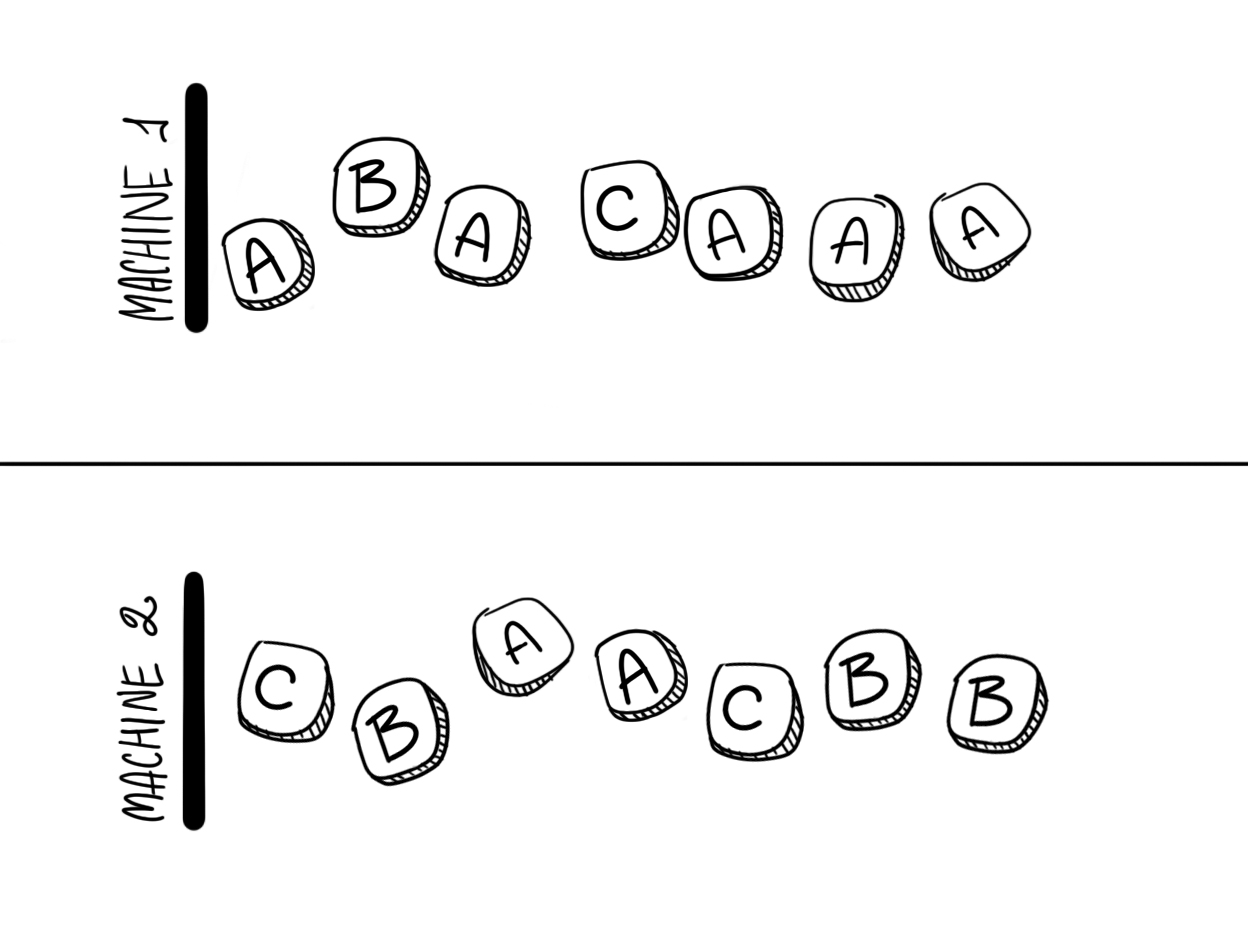 MACHINE 1
A B A C A A A
MACHINE 2
C B A A C B B